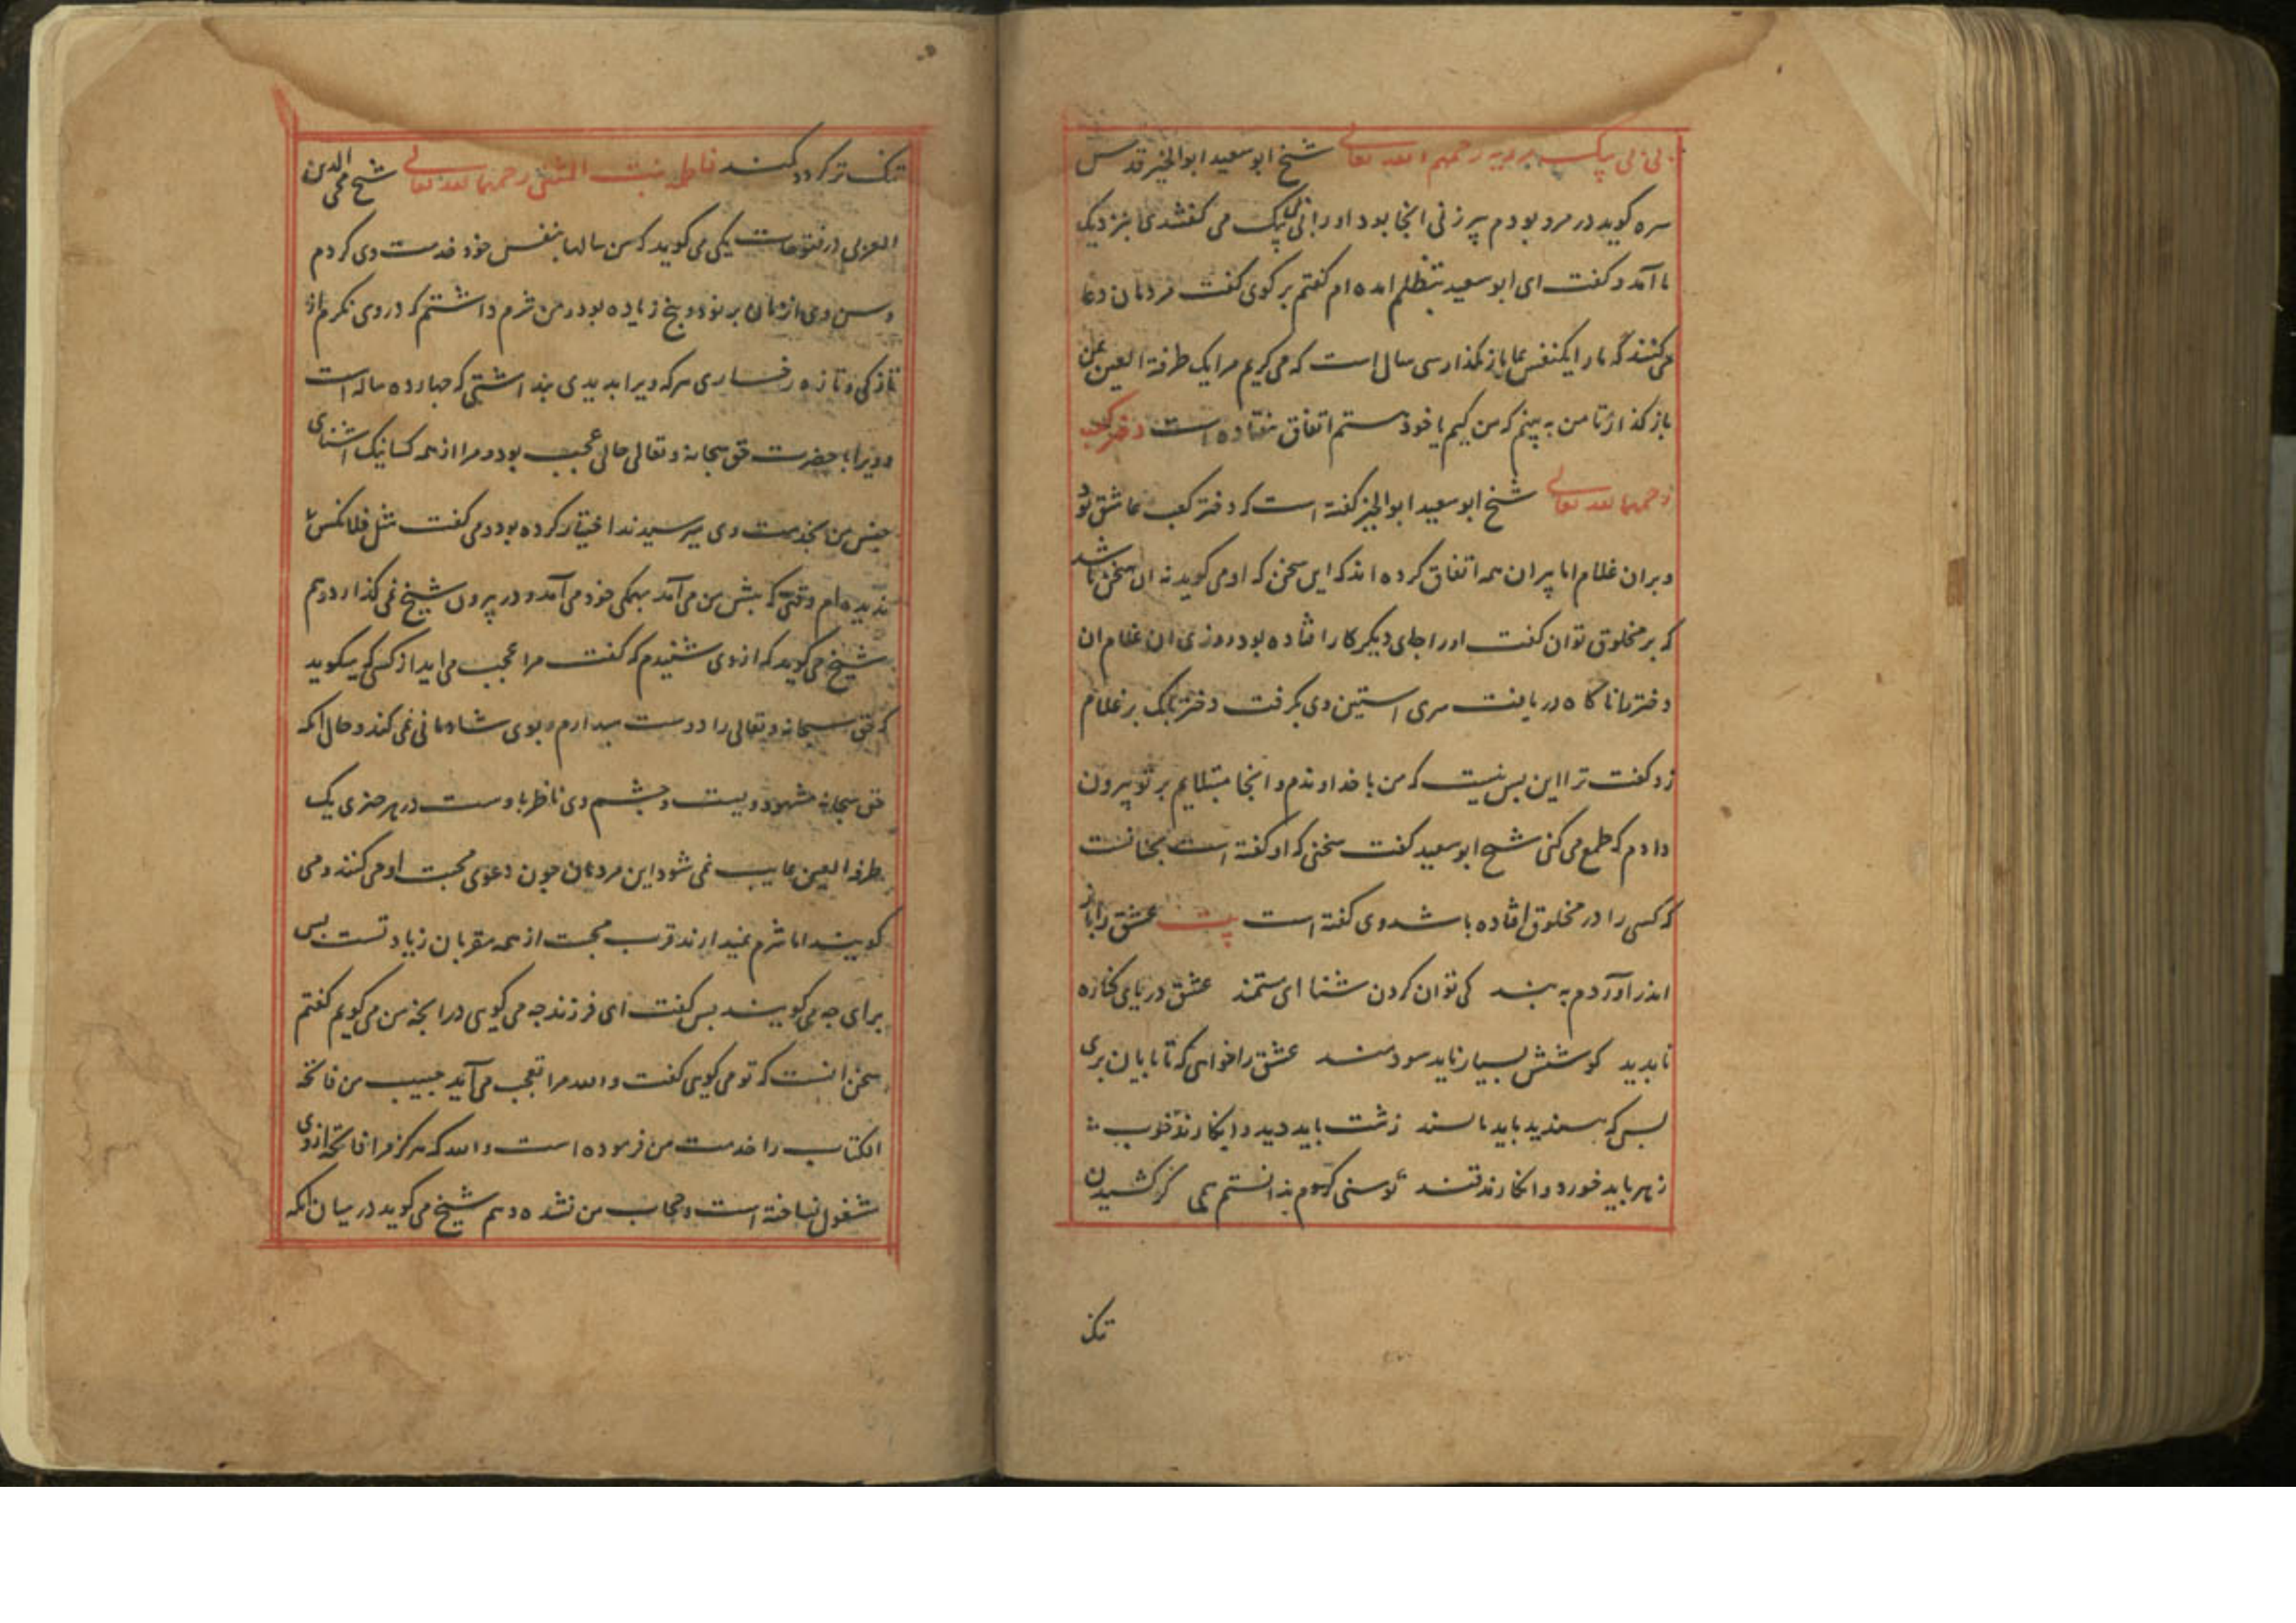 بی بی پیک مرویه رحمهم الله تعالی شیخ ابو سعید ابو الخیر قدس
سره کوید در مرو بودم پیر زنی انجا بود او را بی بی پیک می کفتندی بنزدیک
ما آمد و کفت ای ابو سعید بتظلم امده ام کفتم بر کوی کفت مردمان دعا
می کنند که ما را یکنفس بما باز مکذار سی سال است که می کویم مرا یک طرفة العین بمن
باز کذار تا من به بینم که من کیم یا خود هستم اتفاق نیفتاده است دختر کعب
رحمها الله تعالی شیخ ابو سعید ابو الخیر کفته است که دختر کعب عاشق بود
و بران غلام اما پیران همه اتفاق کرده اند که این سخن که او می کوید نه ان سخن باشد
که بر مخلوق توان کفت او را جای دیکر کار افتاده بود روزی ان غلام ان
دختر را ناکاه دریافت سری استین وی بکرفت دختر بانک بر غلام
زد کفت ترا این بس نیست که من با خداوندم و انجا مبتلایم بر تو بیرون
دادم که طمع می کنی شیخ ابو سعید کفت سخنی که او کفته است نجنانست
که کسی را در مخلوق افتاده باشد وی کفته است بیت عشق را باز
اندر آوردم به بند کی توان کردن شنا ای مستمند عشق دریای کناره
نابدید کوشش بسیار ناید سودمند عشق را خواهی که تا بایان بری
بس که بسندید باید ناسند زشت باید دید و انکارید خوب
زهر باید خورد و انکارید قند توسنی کردم ندانستم همی کز کشیدن
تنک
تنک تر کردد کمند فاطمه بنت المثنی رحمها الله تعالی شیخ محی الدین
العربی در فتوحات یکی می کوید که من سالها بنفس خود خدمت وی کردم
و سن وی از زمان بر نود و پنج زیاده بود و من شرم داشتم که در وی نکرم از
نازکی و تازه رخساری هر که ویرا بدیدی بنداشتی که چهارده ساله است
و ویرا با حضرت حق سبحانه و تعالی حالی عجیب بود و مرا از همه کسانیکه از ابنای
جنس من بخدمت وی میرسیدند اختیار کرده بود و می کفت مثل فلانکس
ندیده ام وقتی که پیش من می آمد بهمکی خود می آمد و در بیرون هیچ نمی کذارد و هم
شیخ می کوید که از وی شنیدم که کفت مرا عجب می اید از کسی که میکوید
که حق سبحانه و تعالی را دوست میدارم و بوی شادمانی نمی کند و حال انکه
حق سبحانه مشهود ویست و چشم وی ناظر باوست در هر چیزی یک
طرفه العین غایب نمی شود این مردمان چون دعوی محبت او می کنند و می
کویند اما شرم نمیدارند قرب محبت از همه مقربان زیادتست بس
برای چه می کویند بس کفت ای فرزند چه می کوی در انچه من می کویم کفتم
سخن انست که تو می کوی کفت والله مرا تعجب می آید حبیب من فاتحة
الکتاب را خدمت من فرموده است والله که هرکز مرا فاتحه از وی
مشغول نساخته است و حجاب من نشده و هم شیخ می کوید در میان انکه